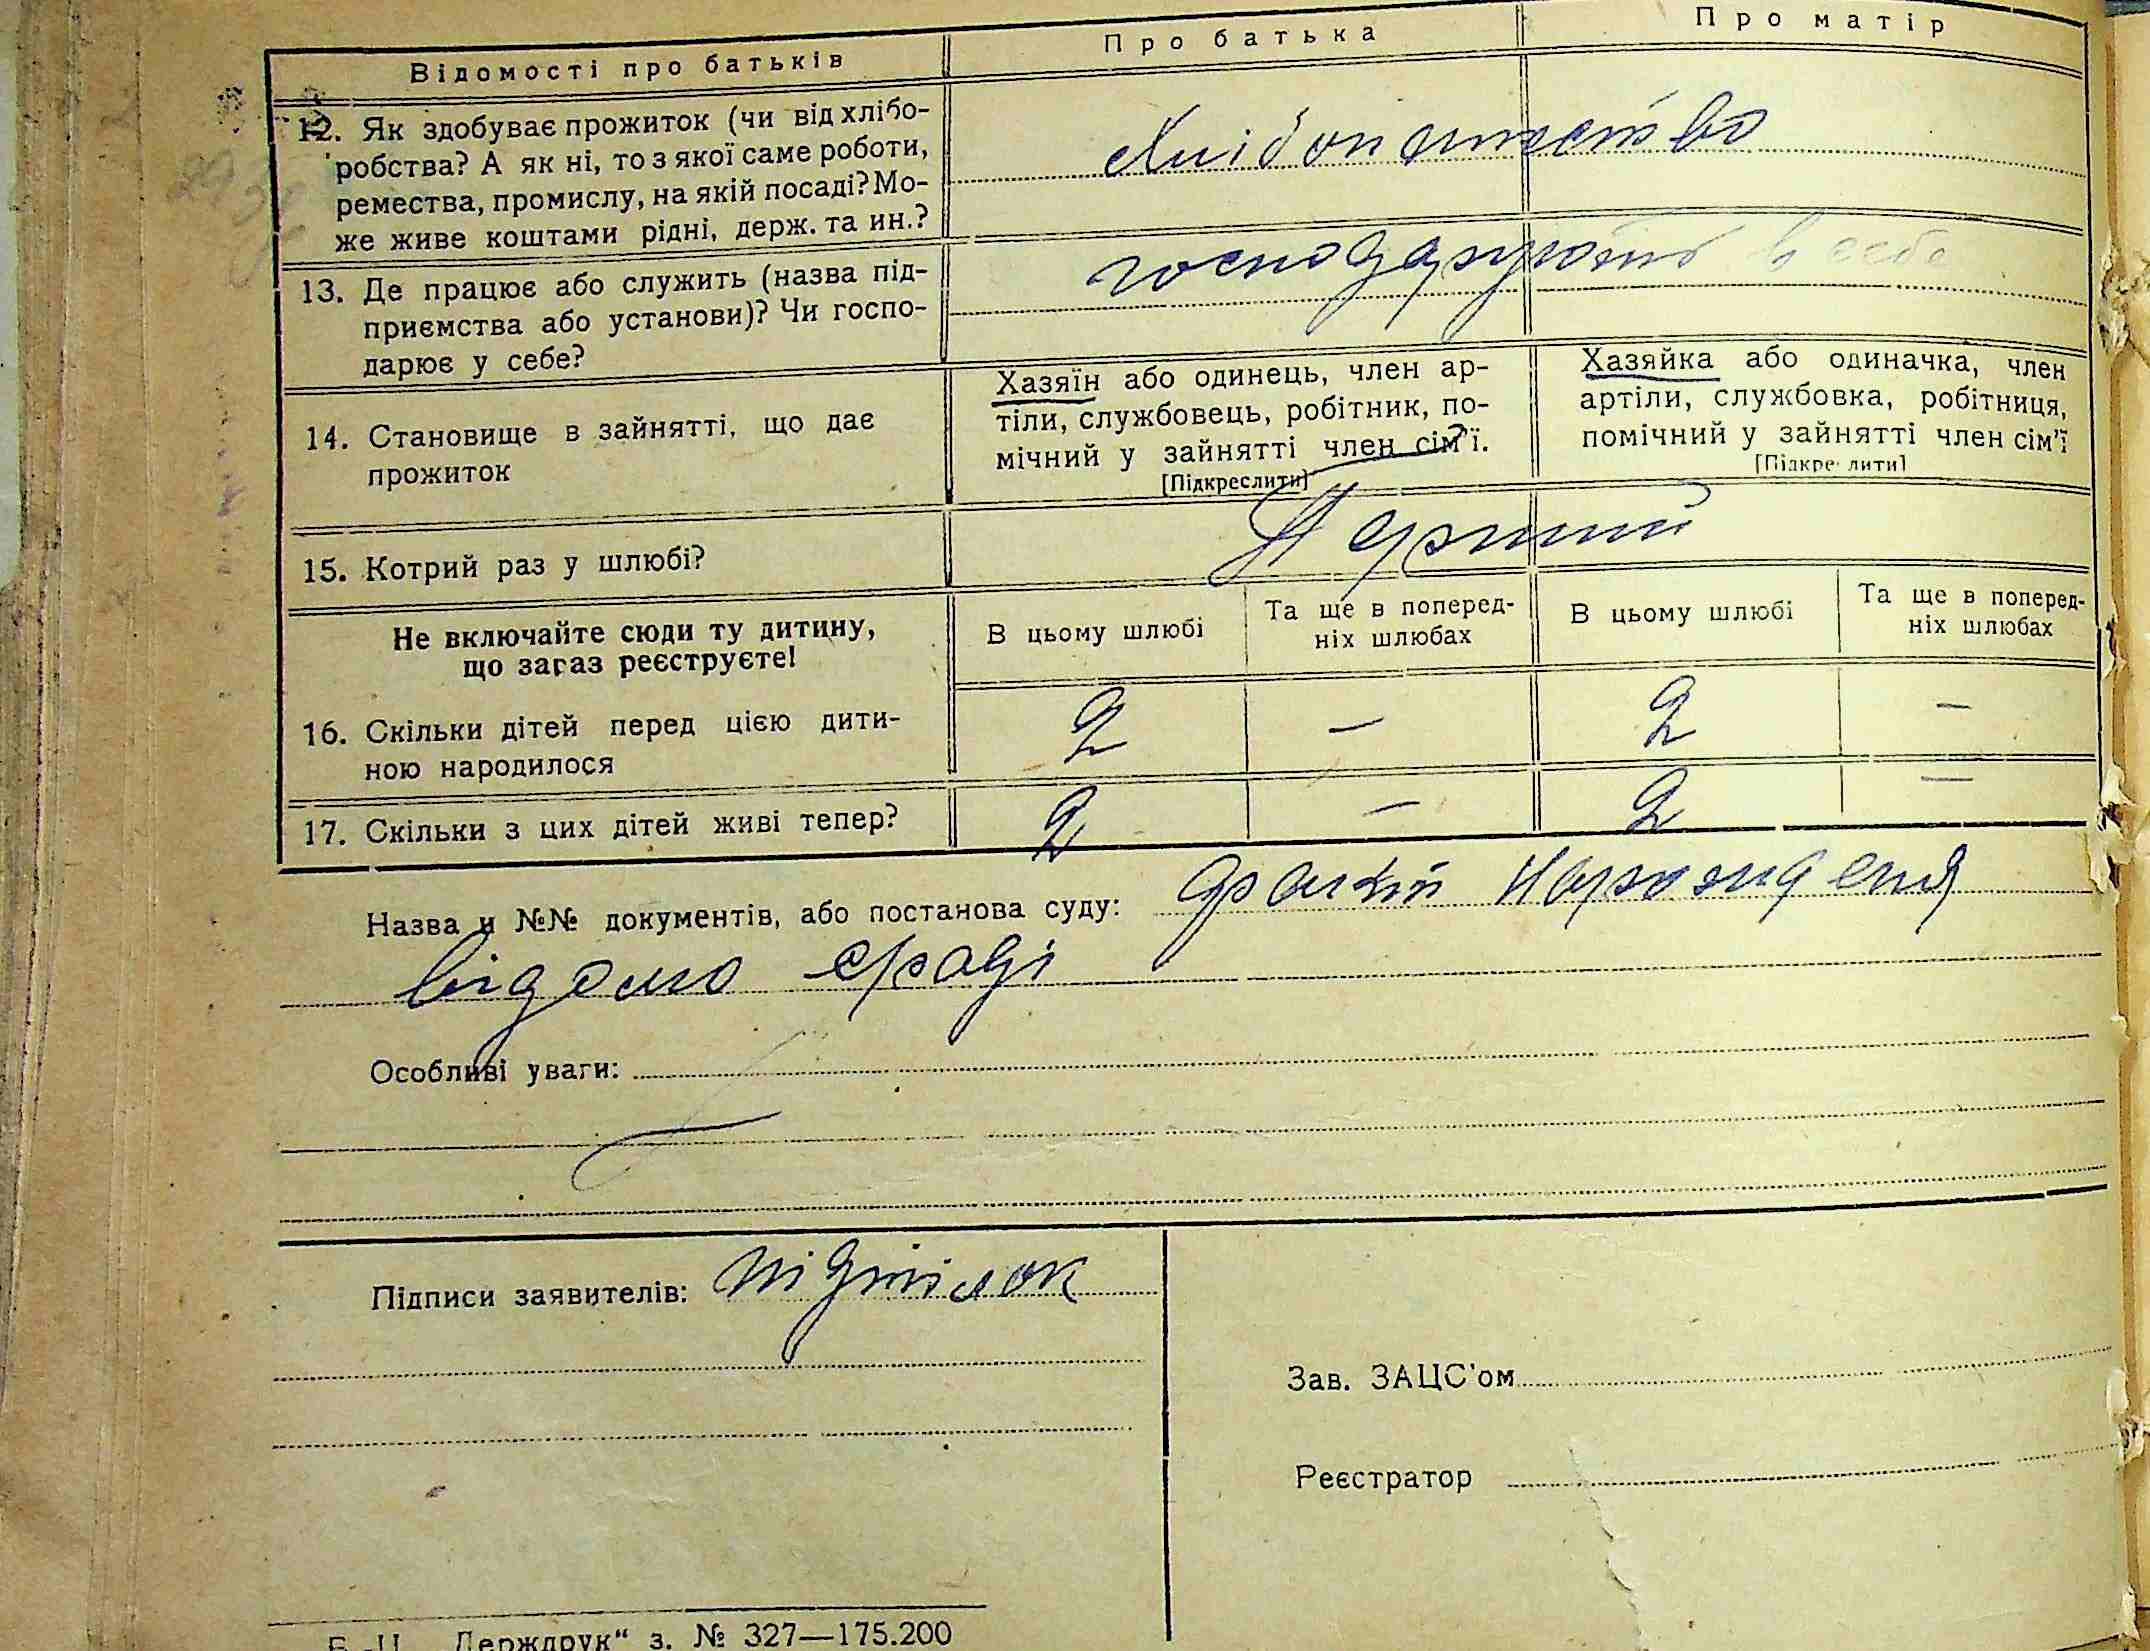 Відомості про батьків
Про батька
Про матір
12. Як здобуває прожиток (чи від хлібо-
робства? А як ні, то з якої саме роботи,
ремества, промислу, на якій посаді? Мо-
же живе коштами рідні, держ. та ин.?
Хлібопашество
13. Де працює або служить (назва під-
приємства або установи)? Чи госпо-
дарює у себе?
господарують в себе
14. Становище в зайнятті, що дає
прожиток
Хазяїн або одинець, член ар-
тіли, службовець, робітник, по-
мічний у зайнятті член сім'ї.
[Підкреслити]
Хазяйка або одиначка, член
артіли, службовка, робітниця,
помічний у зайнятті член сім'ї
[Підкреслити]
15. Котрий раз у шлюбі?
Перший
Не включайте сюди ту дитину,
що зараз реєструєте!
В цьому шлюбі
Та ще в поперед-
ніх шлюбах
В цьому шлюбі
Та ще в поперед-
ніх шлюбах
16. Скільки дітей перед цією дити-
ною народилося
2 — 2 —
17. Скільки з цих дітей живі тепер?
2 — 2 —
Назва и №№ документів, або постанова суду: факт народження
відомо сраді
Особливі уваги:
Підписи заявителів: Підпілок
Зав. ЗАЦС'ом
Реєстратор
Б.-Ц. „Держдрук“ з. № 327—175.200